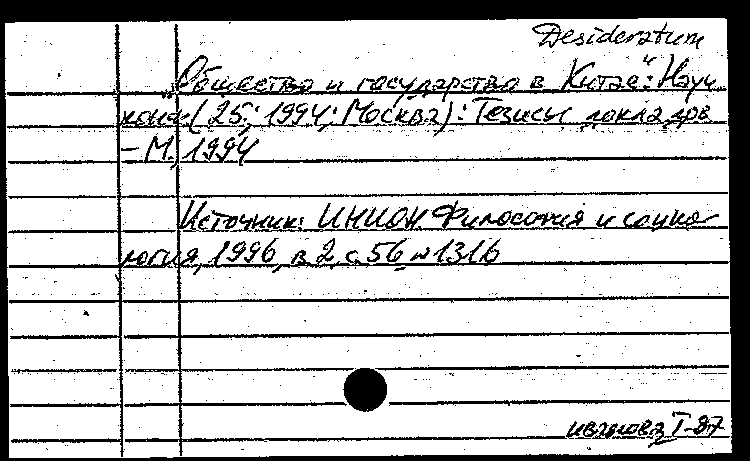 Desideratum
„Общество и государство в Китае“: Науч.
конф (25; 1994; Москва): Тезисы докладов
– М., 1994
Источник: ИНИОН. Философия и социо-
логия, 1996, в. 2, с. 56, № 1316
Иванова I-87